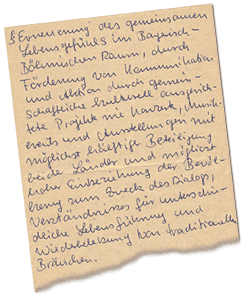 § Erneuerung des gemeinsamen
Lebensgefühles im Bayerisch-
Böhmischen Raum, durch
Förderung von Kommunikation
und Aktion durch gemein-
schaftliche kulturell ausgerich-
tete Projekte wie Konzerte, Musik-
events und Ausstellungen mit
möglichst häufige Beteiligung
beide Länder und möglichst
hoher Einbeziehung der Bevöl-
kerung zum Zwecke des Dialogs,
Verständnisses für unterschied-
liche Lebensführung und
Wiederbelebung von traditionellen
Bräuchen.